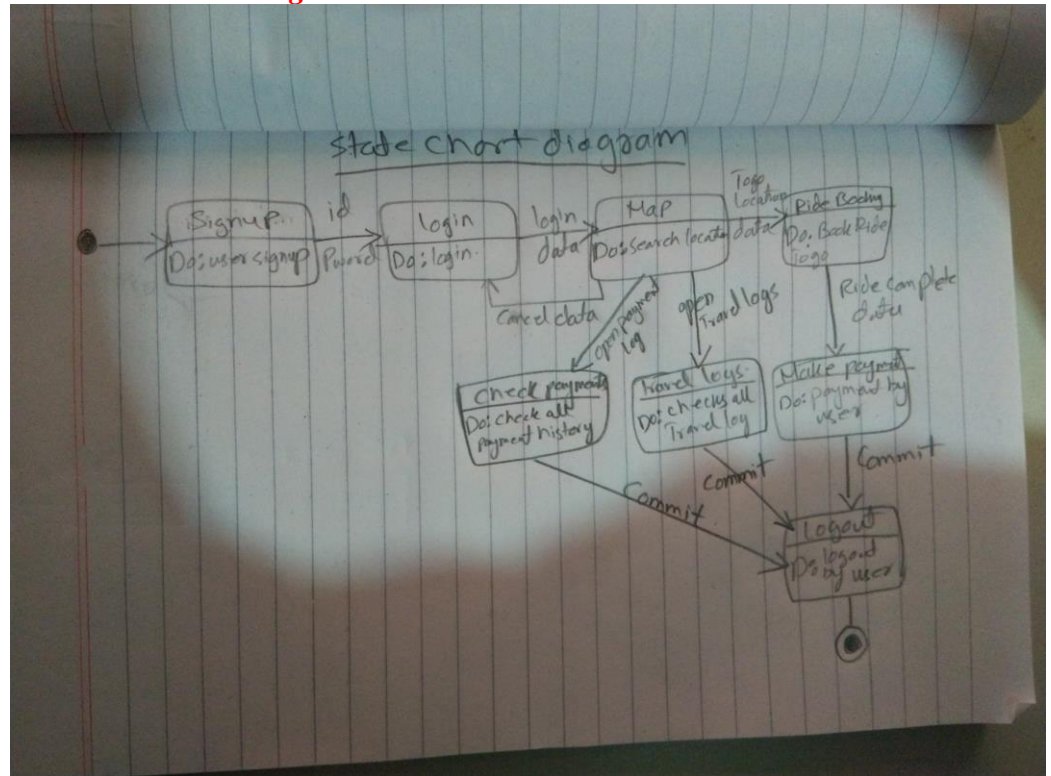 State chart diagram
Signup
Do: user signup
id
Pword
login
Do: login
login
data
Map
Do: search locatio
Togo
Location
data
Ride Booking
Do: Book Ride
Togo
Cancel data
open payment
log
open
Travel logs
Ride complete
data
check payments
Do: check all
payment history
Travel logs
Do: checks all
Travel log
Make payment
Do: payment by
user
Commit
Commit
Commit
Logout
Do: logout
by user